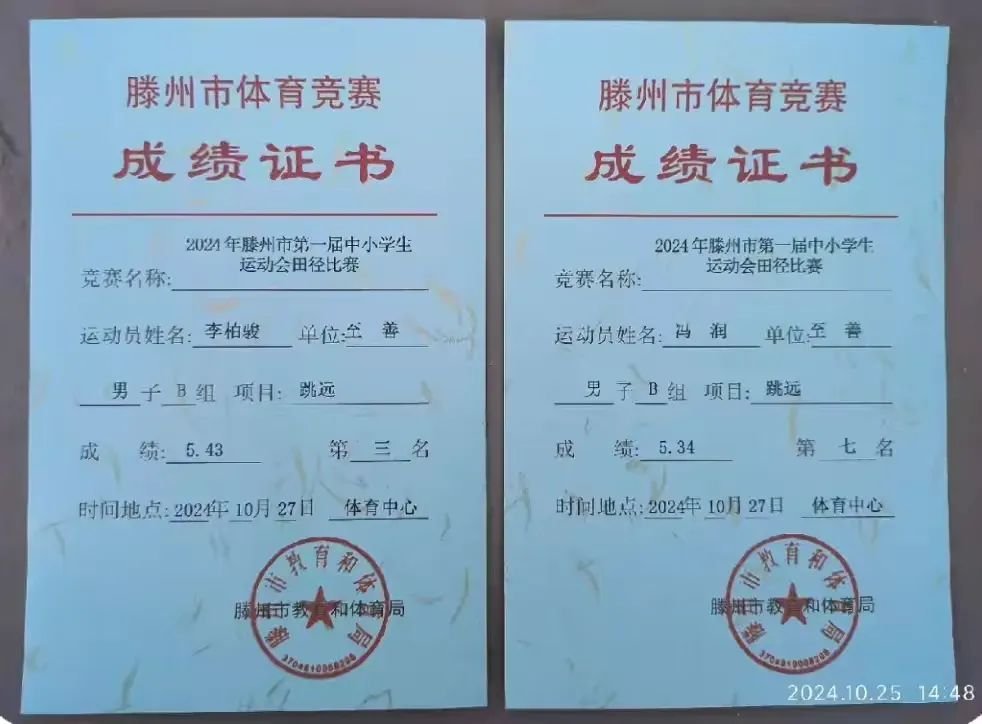 滕州市体育竞赛
成绩证书
2024年滕州市第一届中小学生
运动会田径比赛
竞赛名称:
运动员姓名: 李柏骏 单位:至 善
男 子 B 组 项目: 跳远
成 绩: 5.43 第 三 名
时间地点:2024年 10月 27日 体育中心
滕州市教育和体育局
滕州市教育和体育局
3704810008208
滕州市体育竞赛
成绩证书
2024年滕州市第一届中小学生
运动会田径比赛
竞赛名称:
运动员姓名: 冯 润 单位:至 善
男 子 B 组 项目: 跳远
成 绩: 5.34 第 七 名
时间地点:2024年 10月 27日 体育中心
滕州市教育和体育局
滕州市教育和体育局
3704810008208
2024.10.25 14:48